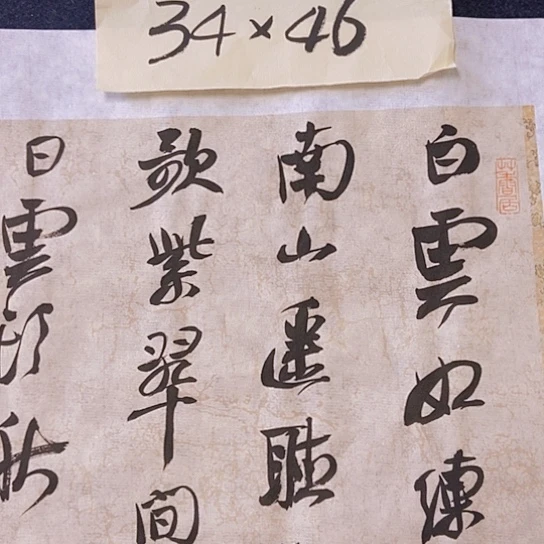 34×46
白雲如練
南山遥聽
歌紫翠間
日雲頭秋